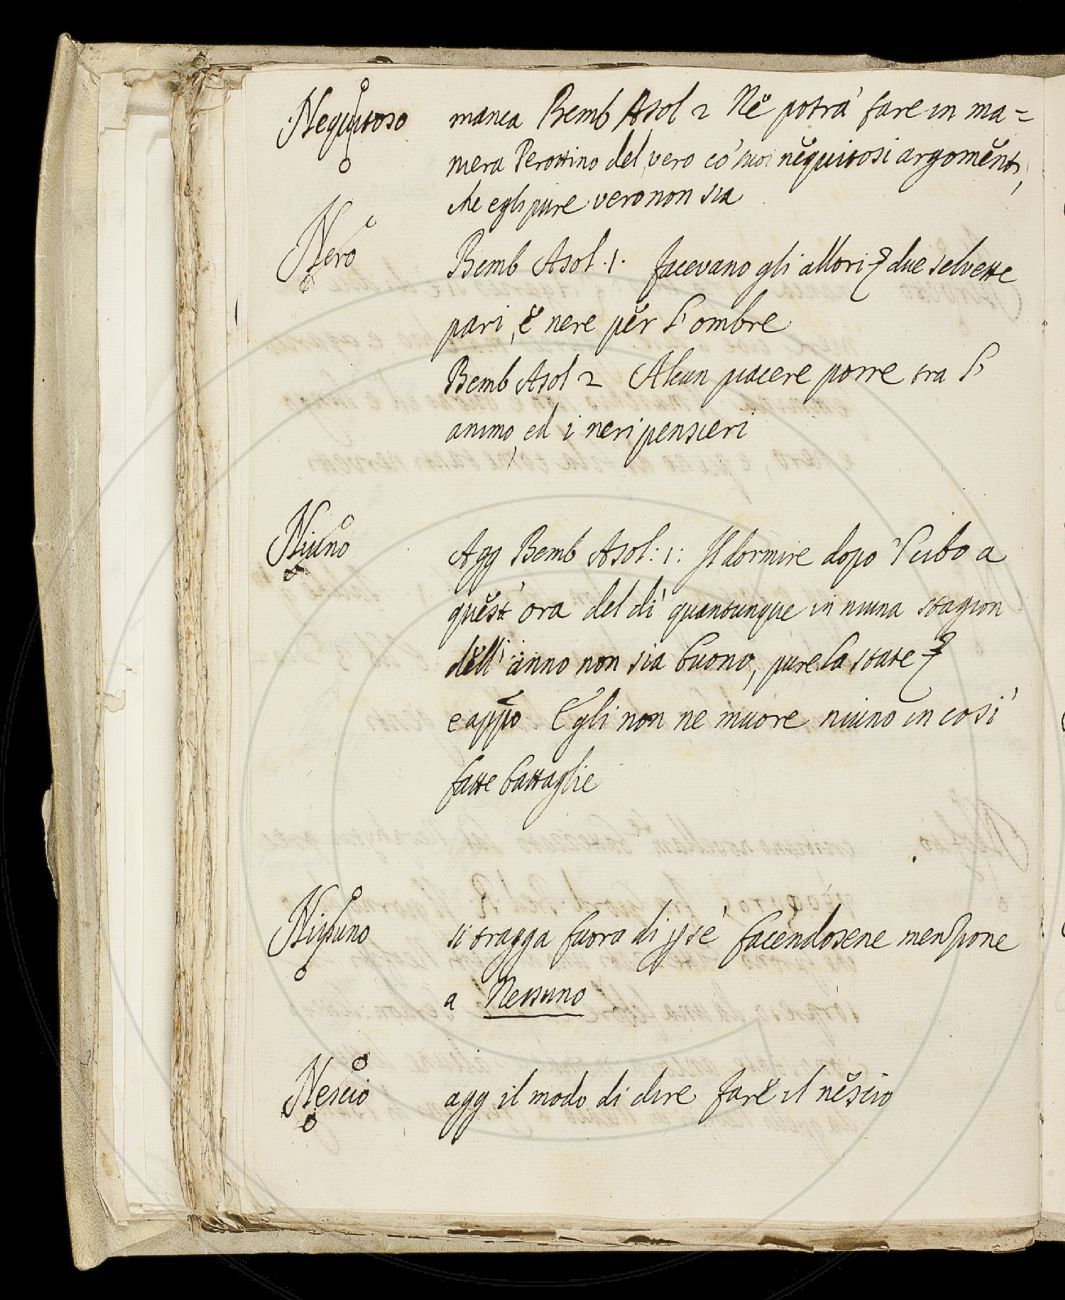 Nequitoso manca Bemb Asol 2 Nè potrà fare in ma=
niera Perottino del vero co' suoi nequitosi argomenti,
che egli pure vero non sia
Nero Bemb Asol. 1. facevano gli allori due selvette
pari, e nere per l'ombre
Bemb Asol 2 Alcun piacere porre tra l'
animo, ed i neri pensieri
Niuno Agg Bemb Asol: 1: Il dormire dopo 'l cibo a
quest' ora del dì quantunque in niuna stagion
dell' anno non sia buono, pure la state
e appo Egli non ne muore niuno in così
fatte battaglie
Nissuno si tragga fuora di se facendosene menzione
a Nessuno
Nescio agg il modo di dire fare il nescio